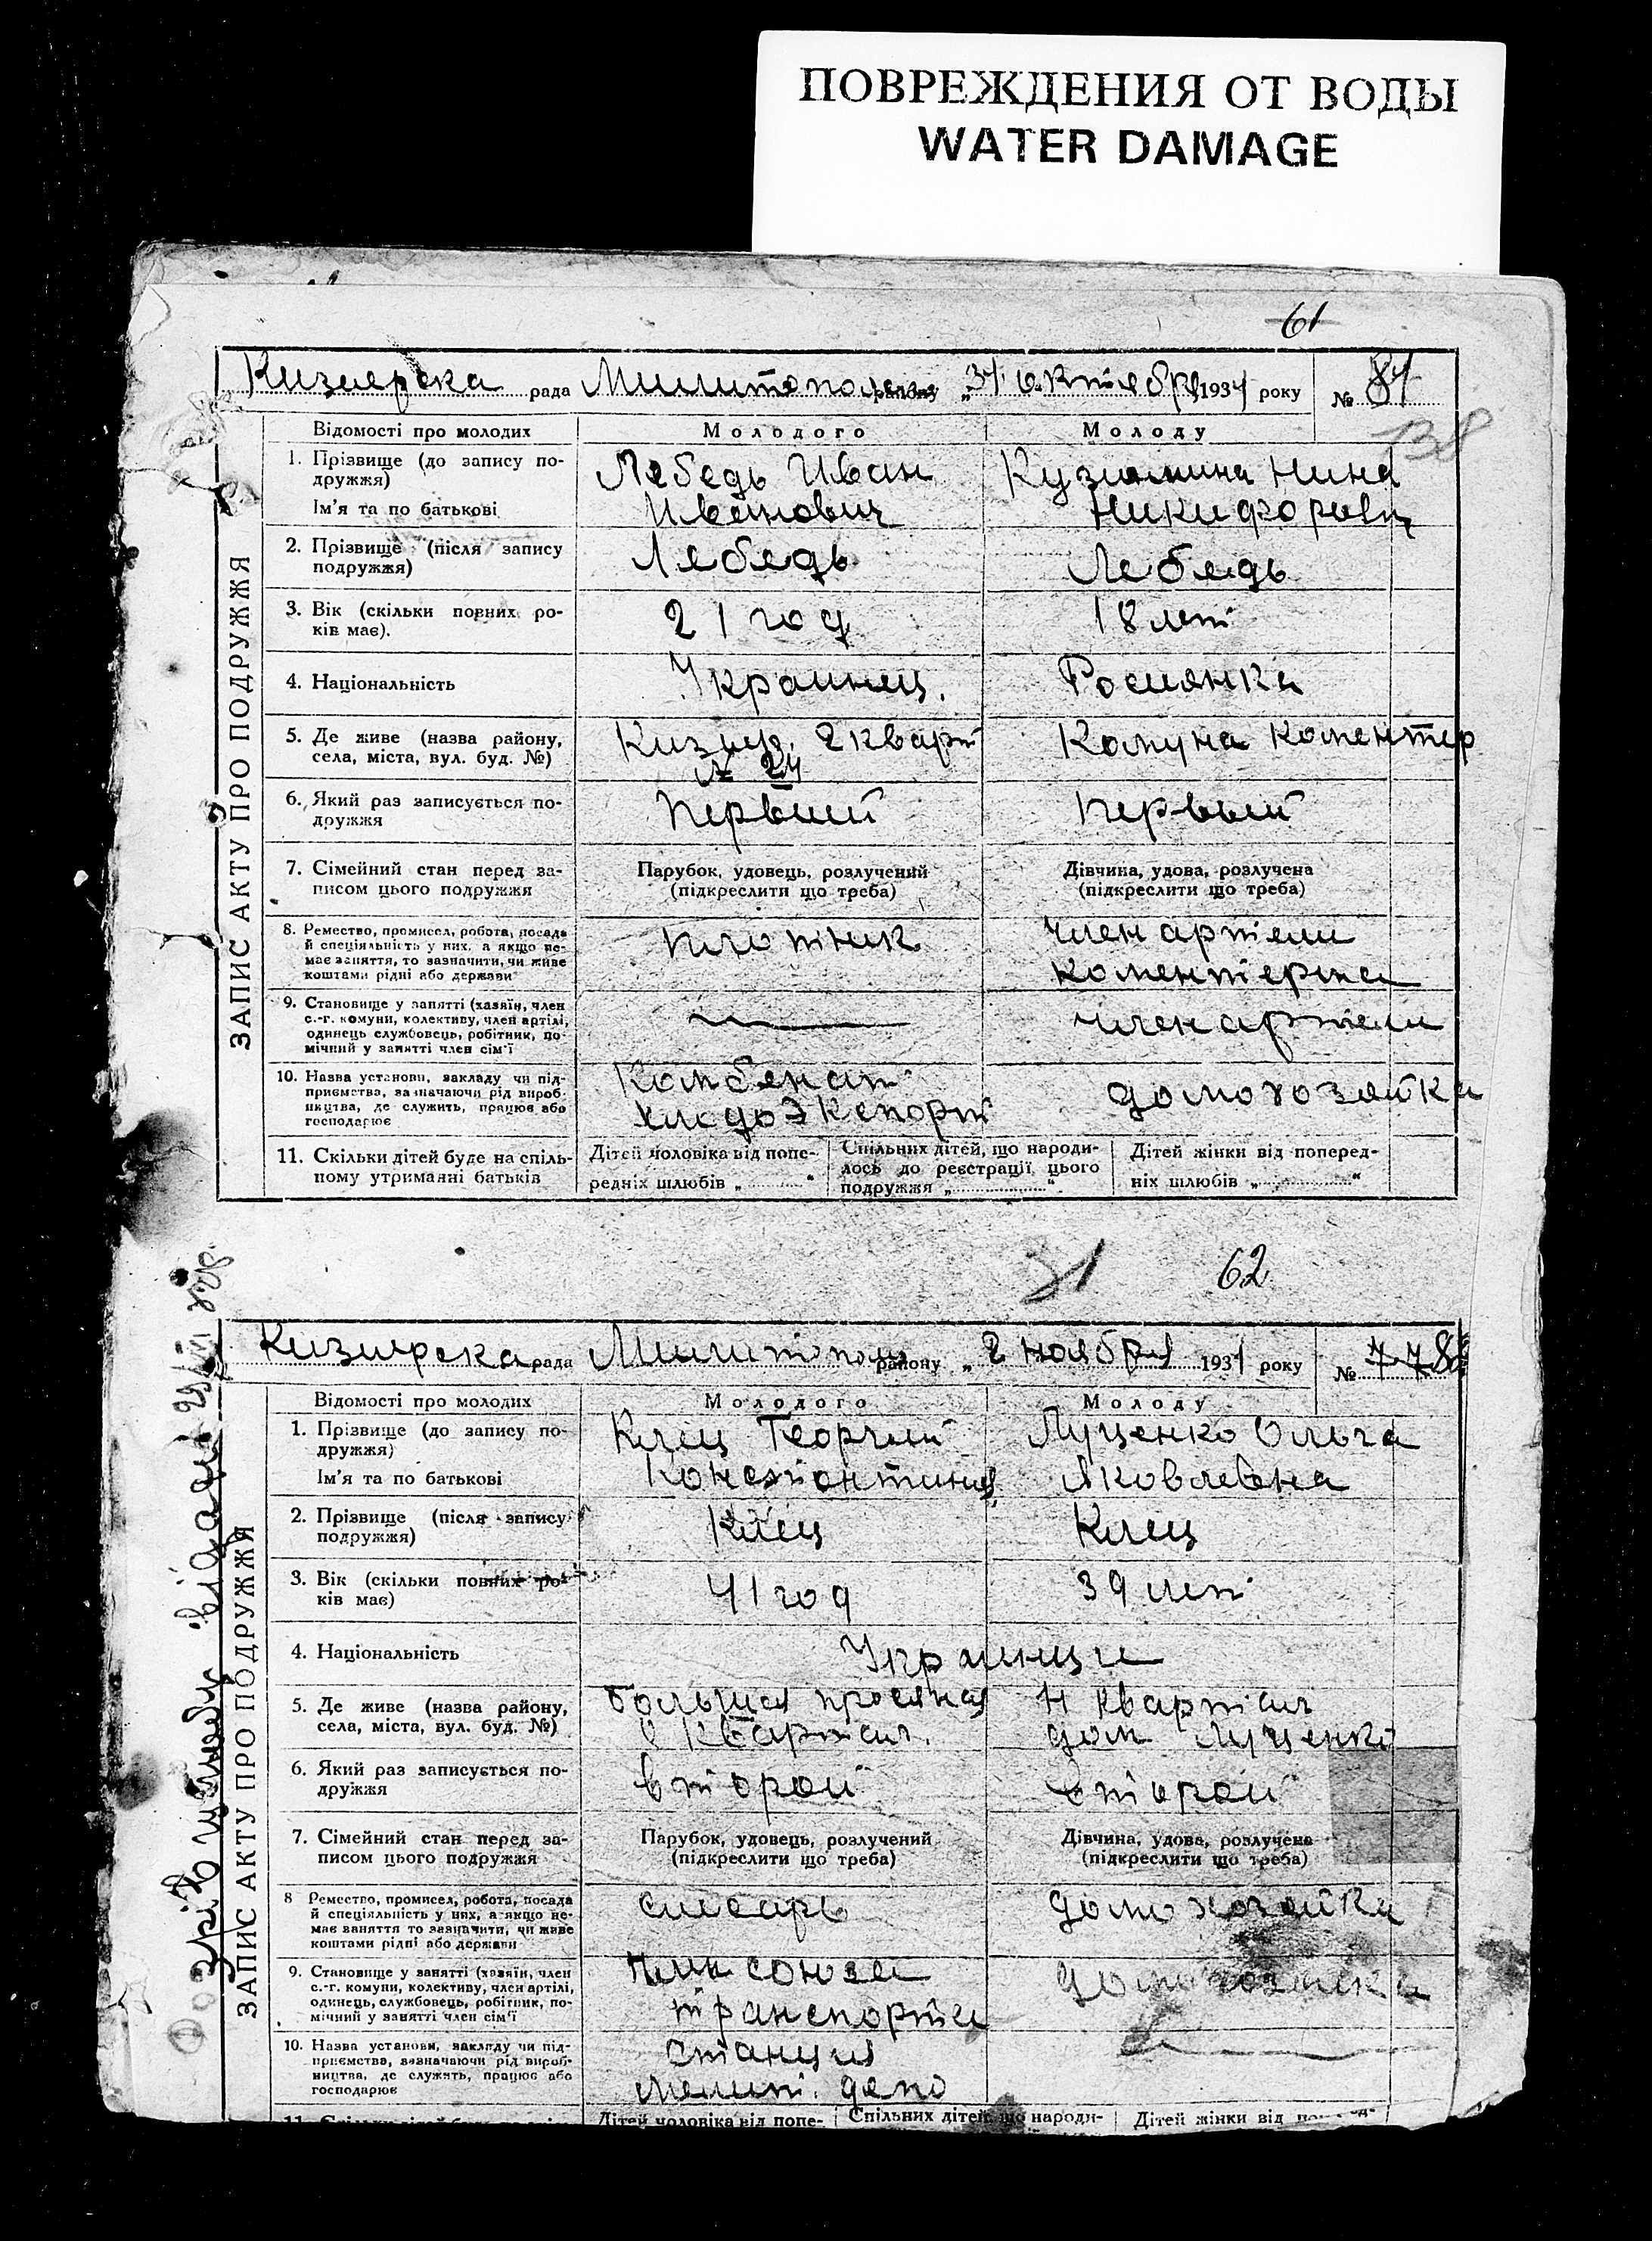 ПОВРЕЖДЕНИЯ ОТ ВОДЫ
WATER DAMAGE
61
Кизиярска рада Милитопольск району „31 октября 1931 року № 84
138
ЗАПИС АКТУ ПРО ПОДРУЖЖЯ
Відомості про молодих Молодого Молоду
1. Прізвище (до запису по-
дружжя)
Ім'я та по батькові
Лебедь Иван
Иванович
Кузьмина Нина
Никифоровн
2. Прізвище (після запису
подружжя)
Лебедь
Лебедь
3. Вік (скільки повних ро-
ків має).
21 год
18 лет
4. Національність
Украинец.
Росиянка
5. Де живе (назва району,
села, міста, вул. буд. №)
Кизияр. 2 кварт
№ 24
Комуна Коментер
6. Який раз записується по-
дружжя
Первый
Первый
7. Сімейний стан перед за-
писом цього подружжя
Парубок, удовець, розлучений
(підкреслити що треба)
Дівчина, удова, розлучена
(підкреслити що треба)
8. Ремество, промисел, робота, посада
й спеціяльність у них, а якщо не-
має заняття, то зазначити, чи живе
коштами рідні або держави
плотник
член артели
коментерна
9. Становище у занятті (хазяїн, член
с.-г. комуни, колективу, член артілі,
одинець службовець, робітник, по-
мічний у занятті член сім'ї
член артели
10. Назва установи, закладу чи під-
приємства, зазначаючи рід вироб-
ництва, де служить, працює або
господарює
Комбенат
Хлебо Экспорт
домохозяйка
11. Скільки дітей буде на спіль-
ному утриманні батьків
Дітей чоловіка від попе-
редніх шлюбів „ “
Спільних дітей, що народи-
лось до реєстрації цього
подружжя „ “
Дітей жінки від поперед-
ніх шлюбів „ “
62
Кизиярска рада Милитополь району „2 ноября 1931 року №
ЗАПИС АКТУ ПРО ПОДРУЖЖЯ
Відомості про молодих Молодого Молоду
1. Прізвище (до запису по-
дружжя)
Ім'я та по батькові
Клец Георгий
Константинов
Луценко Ольга
Яковлевна
2. Прізвище (після запису
подружжя)
Клец
Клец
3. Вік (скільки повних ро-
ків має)
41 год
39 лет
4. Національність
Украинци
5. Де живе (назва району,
села, міста, вул. буд. №)
Большая просяная
квартал.
11 квартал
дом Луценко
6. Який раз записується по-
дружжя
второй
второй
7. Сімейний стан перед за-
писом цього подружжя
Парубок, удовець, розлучений
(підкреслити що треба)
Дівчина, удова, розлучена
(підкреслити що треба)
8 Ремество, промисел, робота, посада
й спеціяльність у них, а якщо не-
має заняття то зазначити, чи живе
коштами рідні або держави
слесарь
домохозяйка
9. Становище у занятті (хазяїн, член
с.-г. комуни, колективу, член артілі,
одинець, службовець, робітник, по-
мічний у занятті член сім'ї
член союза
транспорта
домохозяйка
10. Назва установи, закладу чи під-
приємства, зазначаючи рід вироб-
ництва, де служить, працює або
господарює
станция
Мелит. депо
Дітей чоловіка від попе-
Спільних дітей, що народи-
Дітей жінки від